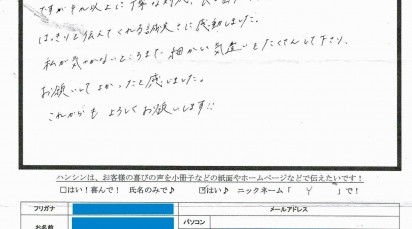 ですがそれ以上に丁寧な
はっきりと伝えてくれる誠実さに感動しました。
私が気づかないところまで細かい気遣いをたくさんして下さり、
お願いしてよかったと感じました。
これからもよろしくお願いします!!
ハンシンは、お客様の喜びの声を小冊子などの紙面やホームページなどで伝えたいです!
□はい!喜んで! 氏名のみで♪ ☑はい♪ ニックネーム「 Y 」で!
フリガナ メールアドレス
お名前 パソコン